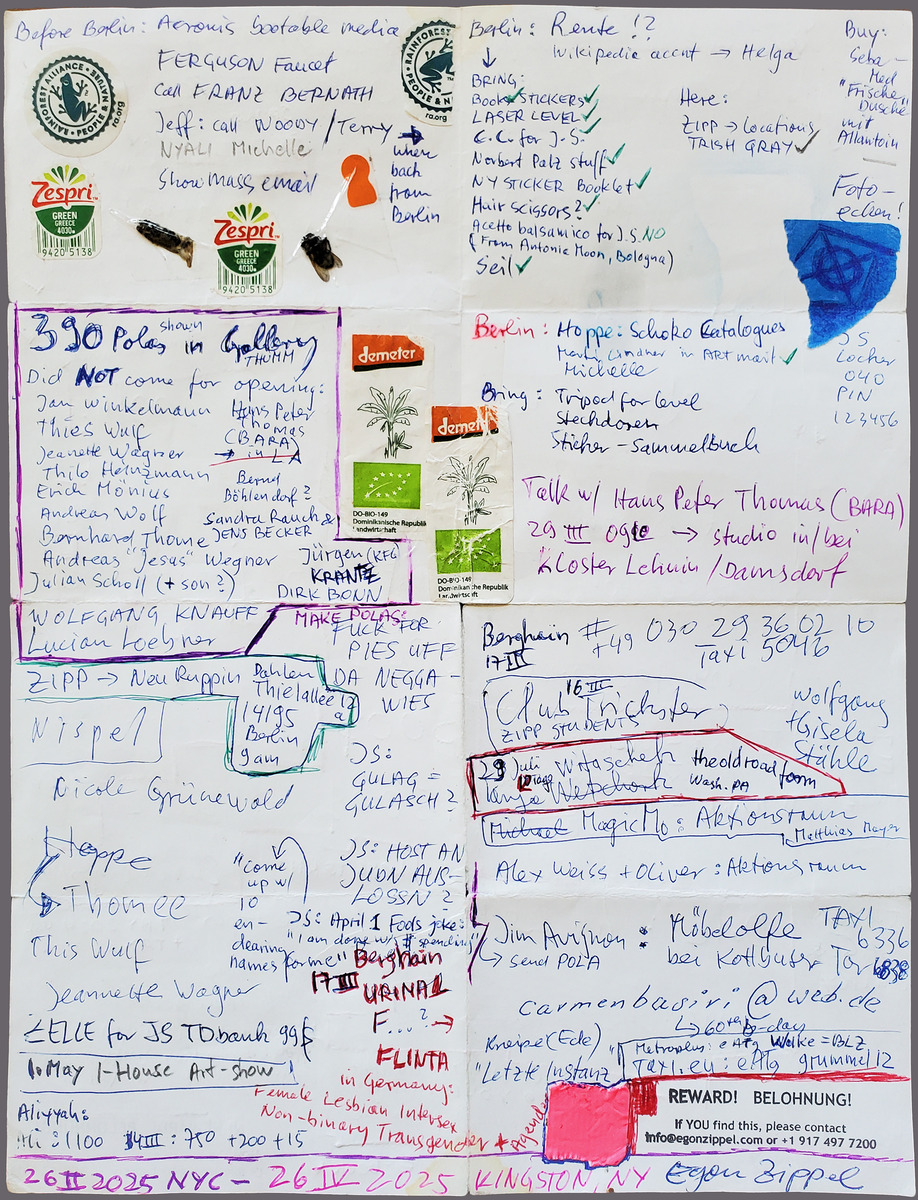 Before Berlin: Acronis bootable media
FERGUSON Faucet
Call FRANZ BERNATH
Jeff: call WOODY / Terry →
NYALI Michelle
Show mass email
when
back
from
Berlin
RAINFOREST ALLIANCE
PEOPLE & NATURE
ra.org
RAINFOREST
PEOPLE & N
ra.org
Zespri
GREEN
GREECE
4030
9420 5138
Zespri
GREEN
GREECE
4030
9420 5138
Berlin: Rente !?
Wikipedia accnt → Helga
↓
BRING:
Book STICKERS ✓
LASER LEVEL ✓
C.C. for J.S. ✓
Norbert Palz stuff ✓
NY STICKER Booklet ✓
Hair scissors? ✓
Acetto balsamico for J.S. NO
(From Antonia Moon, Bologna)
Seil ✓
Here:
ZIPP → Locations
TRISH GRAY ✓
Buy:
Seba-
Med
"Frische
Dusche"
mit
Allantoin
Foto-
ecken!
390 Polas shown in Gallery
THUMM
Did NOT come for opening:
Jan Winkelmann
Thies Wulf
Jeanette Wagner
Thilo Heinzmann
Erich Mönius
Andreas Wolf
Bernhard Thome
Andreas "Jesus" Wegner
Julian Scholl (+ son?)
Hans Peter
Thomas
(BARA)
→ in LA
Bernd
Böhlendorf?
Sandra Rauch &
JENS BECKER
Jürgen (KFG)
KRANTZ
DIRK BONN
WOLFGANG KNAUFF
Lucian
demeter
DO-BIO-149
Dominikanische Republik
Landwirtschaft
demeter
DO-BIO-149
Dominikanische Republik
Landwirtschaft
Berlin: Hoppe: Schoko Catalogues
in ART mail ✓
Michelle
Bring: Tripod for level
Steckdosen
Sticker-Sammelbuch
JS
Locher
040
PIN
123456
Talk w/ Hans Peter Thomas (BARA)
29 III → studio in/bei
Kloster Lehnin / Damsdorf
MAKE POLAS:
FUCK FOR
PIES UFF
DA NEGGA-
WIES
ZIPP → Neu Ruppin
Dahlem
Thielallee 12
a
14195
Berlin
9am
Nispel
Nicole Grünewald
JS:
GULAG =
GULASCH?
Hoppe
→ Thomee
This Wulf
Jeannette Wagner
"come
up w/
10
en-
dearing
names for me"
JS: HOST AN
JUDN AUS-
LOSSN?
JS: April 1 Fools joke:
"I am done w/ # spending"
Berghain
17 III
URINAL
F...? →
FLINTA
in Germany:
Female Lesbian Intersex
Non-binary Transgender
* Agender
ZELLE for JS TD bank 99$
1. May 1-House Art-show
Aliyyah:
Ali: 1100 14 III: 750 +200 +15
Berghain # +49 030 29 36 02 10
17 III
Taxi 5046
16 III
Club Trickster
ZIPP STUDENTS
Wolfgang
+ Gisela
Stähle
29 Juli
theoldroadfarm
Wash. PA
Michael MagicMo: Aktionsraum
Matthias Mayer
Alex Weiss + Oliver: Aktionsraum
Jim Avignon: Möbelolfe
→ send POLA
bei Kottbuser Tor
TAXI
6336
6838
carmenbasiri@web.de
→ 60th B-day
Kneipe (Ede)
"Letzte Instanz"
Metroplus: eATg Wolke = BLZ
Taxi.eu: eATg grummel12
REWARD! BELOHNUNG!
If YOU find this, please contact
Info@egonzippel.com or +1 917 497 7200
26 II 2025 NYC - 26 IV 2025 KINGSTON, NY Egon Zippel